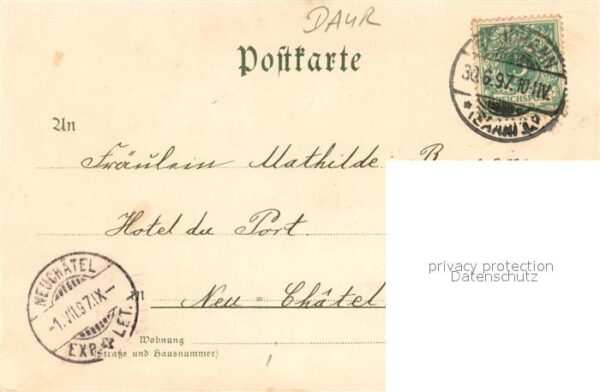 DAUR
Postkarte
30.6.97.10-11V.
REICHSPOST
An
Fräulein Mathilde
Hotel du Port.
privacy protection
Datenschutz
NEUCHÂTEL
-1.VII.97.IX-
EXP. LET.
in Neu-Châtel
Wohnung
(Straße und Hausnummer)